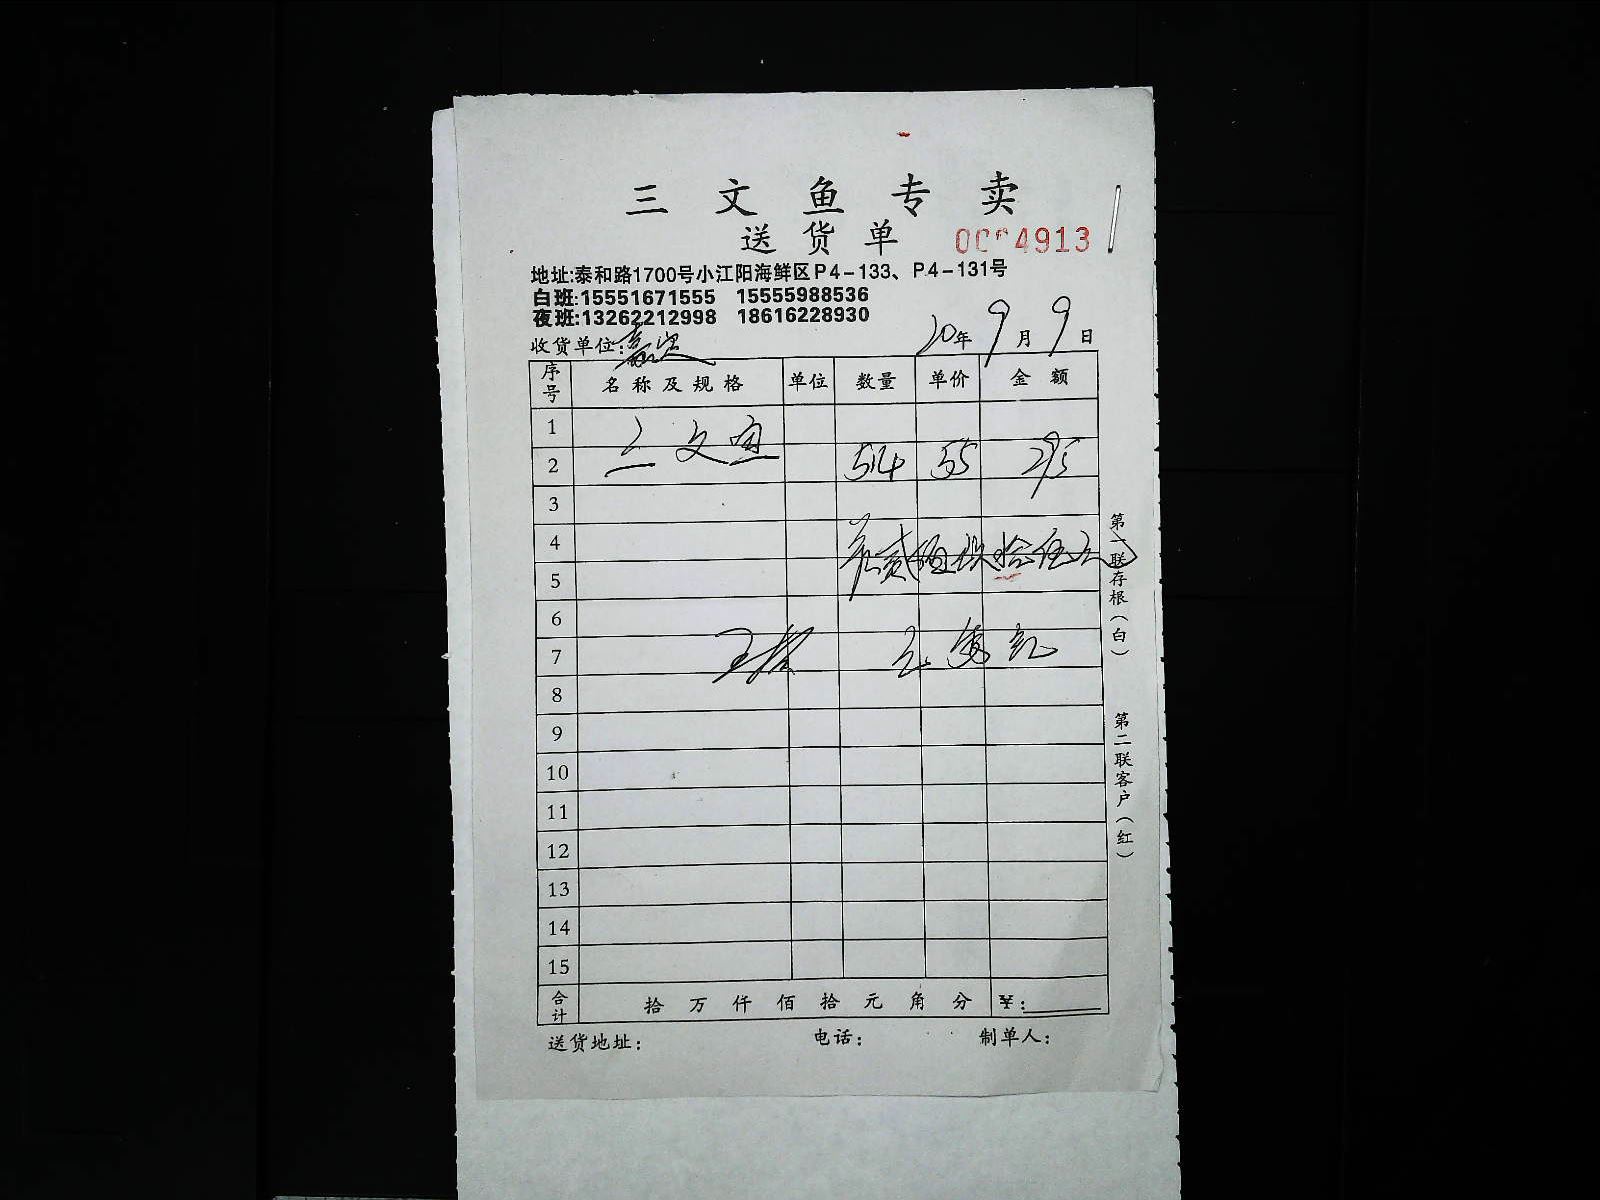 三文鱼专卖
送货单 0004913
地址:泰和路1700号小江阳海鲜区P4-133、P4-131号
白班:15551671555 15555988536
夜班:13262212998 18616228930
收货单位: 20年9月9日
序号 名称及规格 单位 数量 单价 金额
1 三文鱼
2 514 55 295
3
4
5
6
7
8
9
10
11
12
13
14
15
合计 拾万仟佰拾元角分 ¥:
送货地址: 电话: 制单人:
第一联存根(白)
第二联客户(红)